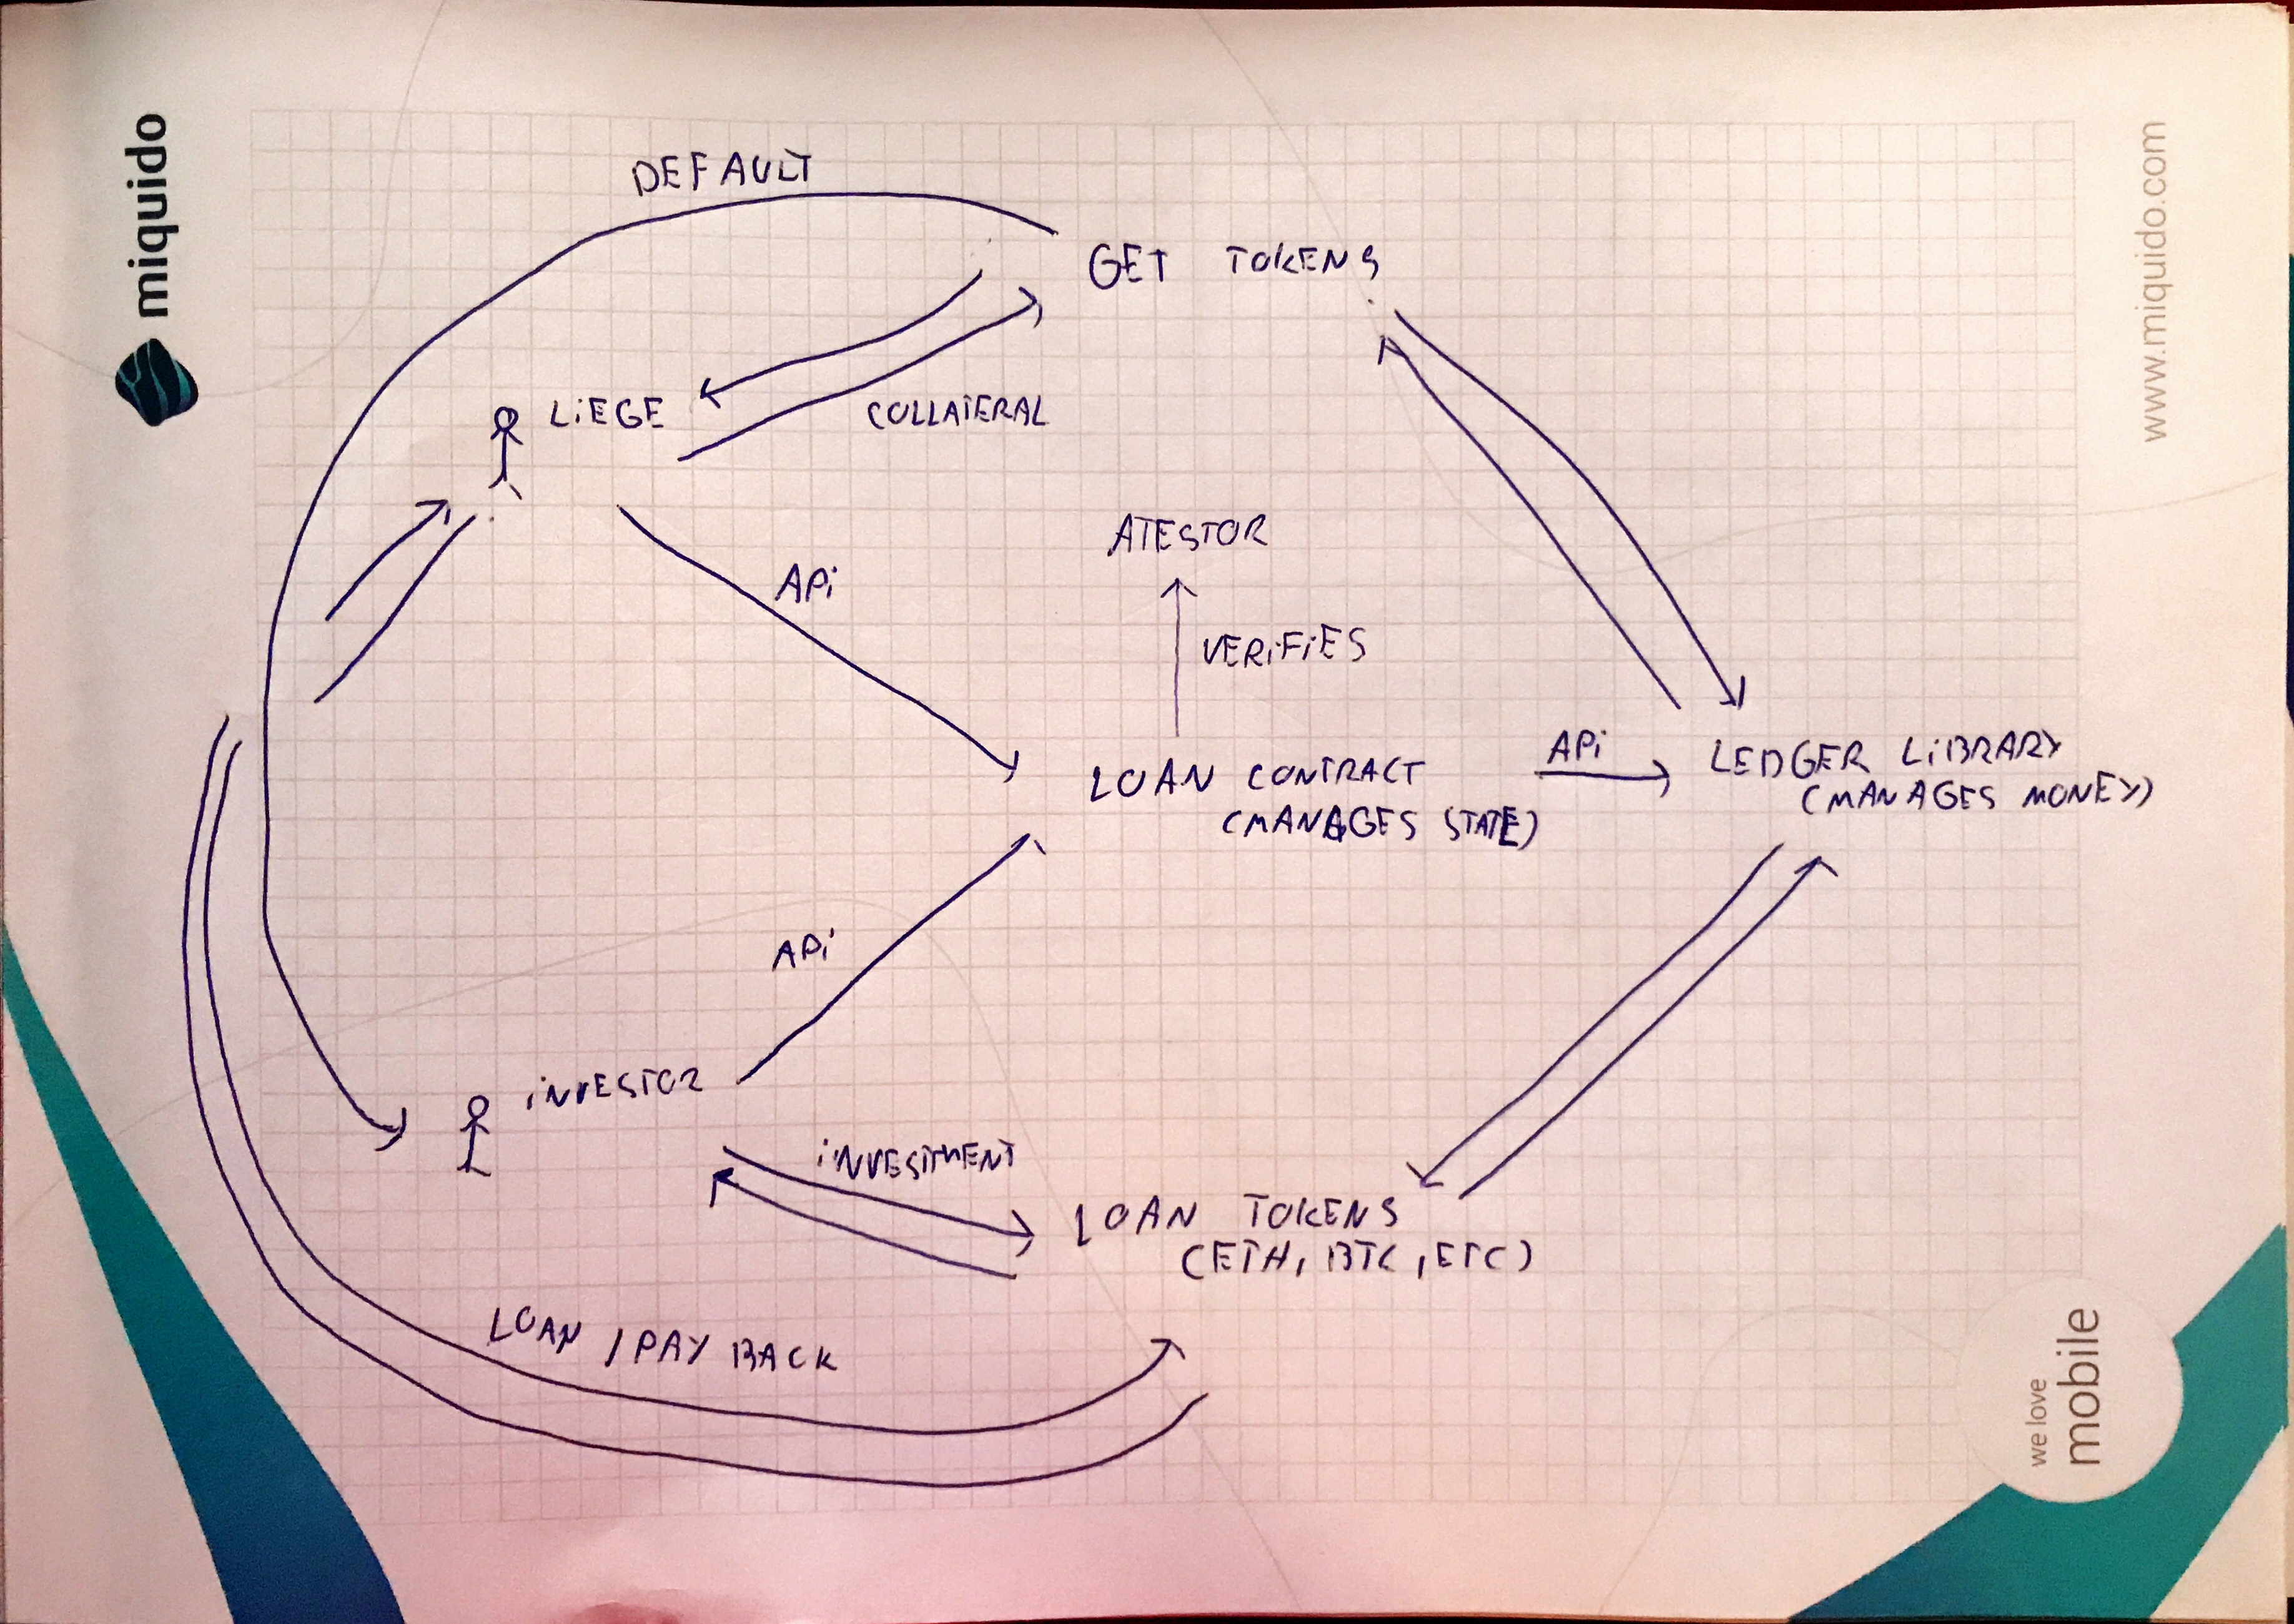 miquido
www.miquido.com
DEFAULT
GET TOKENS
LiEGE
COLLATERAL
ATESTOR
APi
VERiFiES
LOAN CONTRACT
(MANAGES STATE)
APi
LEDGER LiBRARY
(MANAGES MONEY)
APi
iNVESTOR
iNVESTMENT
LOAN TOKENS
(ETH, BTC, ETC)
LOAN / PAY BACK
we love
mobile